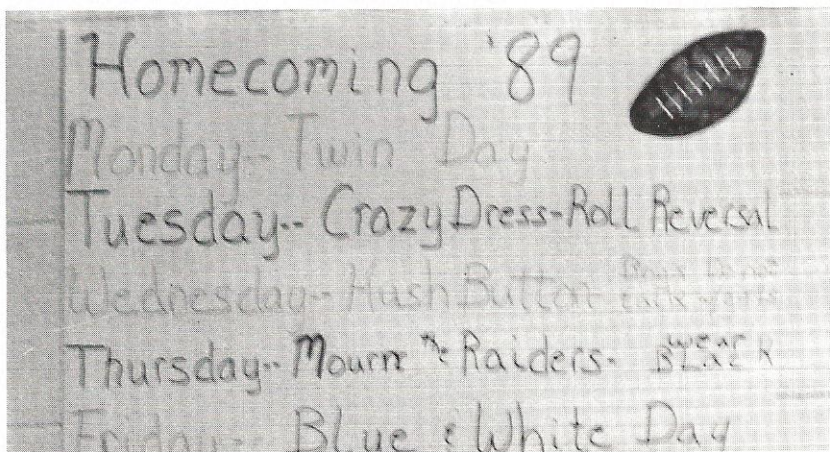 Homecoming '89
Monday-- Twin Day
Tuesday-- Crazy Dress-Roll Reversal
Wednesday-- Hush Button
Thursday-- Mourn the Raiders- wear BLACK
Friday-- Blue & White Day